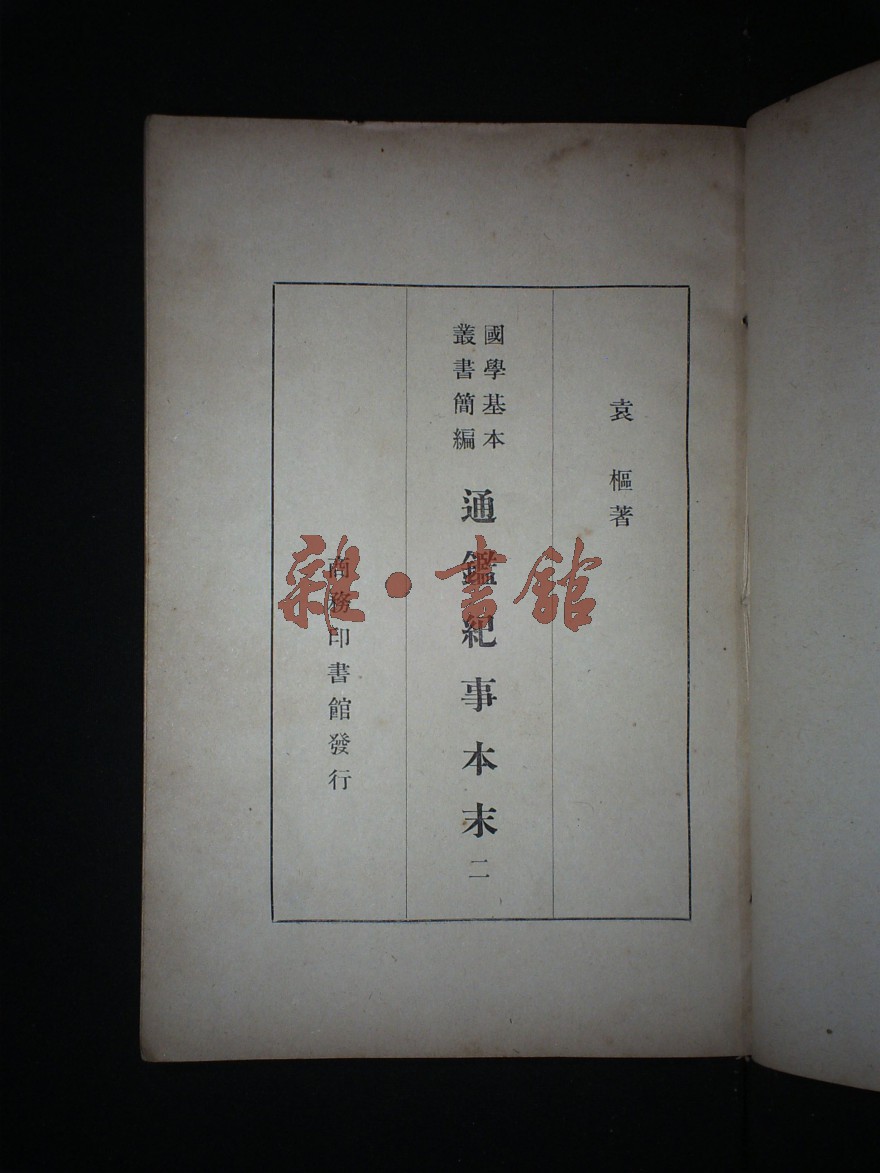 袁樞著
國學基本
叢書簡編
通鑑紀事本末二
商務印書館發行
雜·書館